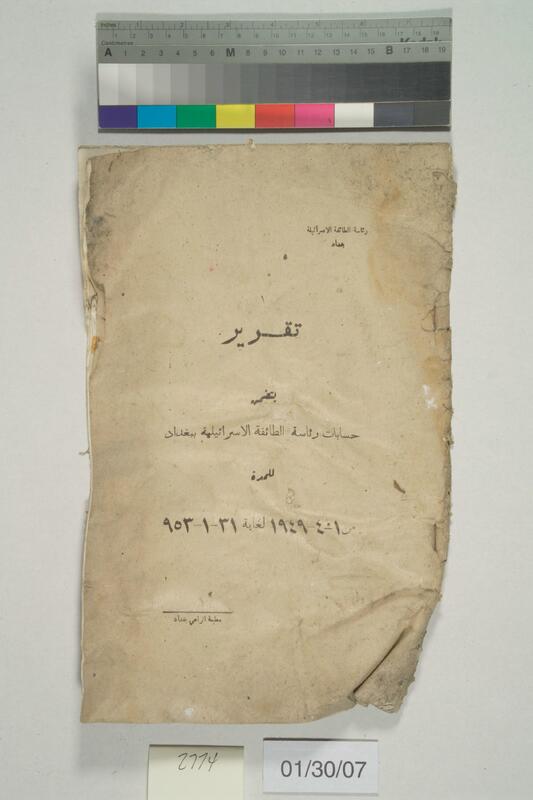 Inches 1 2 3 4 5 6 7 8
Centimetres 1 2 3 4 5 6 7 8 9 10 11 12 13 14 15 16 17 18 19
Kodak
A 1 2 3 4 5 6 M 8 9 10 11 12 13 14 15 B 17 18 19
رئاسة الطائفة الاسرائيلية
بغداد
تقـــرير
يتضمن
حسابات رئاسة الطائفة الاسرائيلية ببغداد
للمدة
من ١-٤-١٩٤٩ لغاية ٣١-١-٩٥٣
مطبعة الراعي بغداد
2774
01/30/07